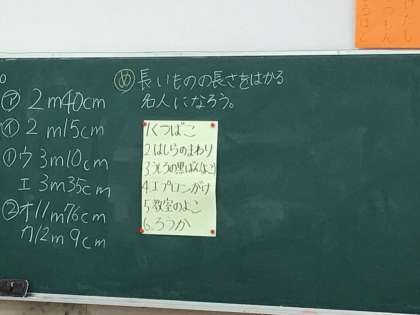 ㋐ 2m40cm
㋑ 2m15cm
① ウ 3m10cm
エ 3m35cm
② オ 11m76cm
カ 12m9cm
め 長いものの長さをはかる
名人になろう。
1.くつばこ
2.はしらのまわり
3.うしろの黒ばん(よこ)
4.エプロンがけ
5.教室のよこ
6.ろうか